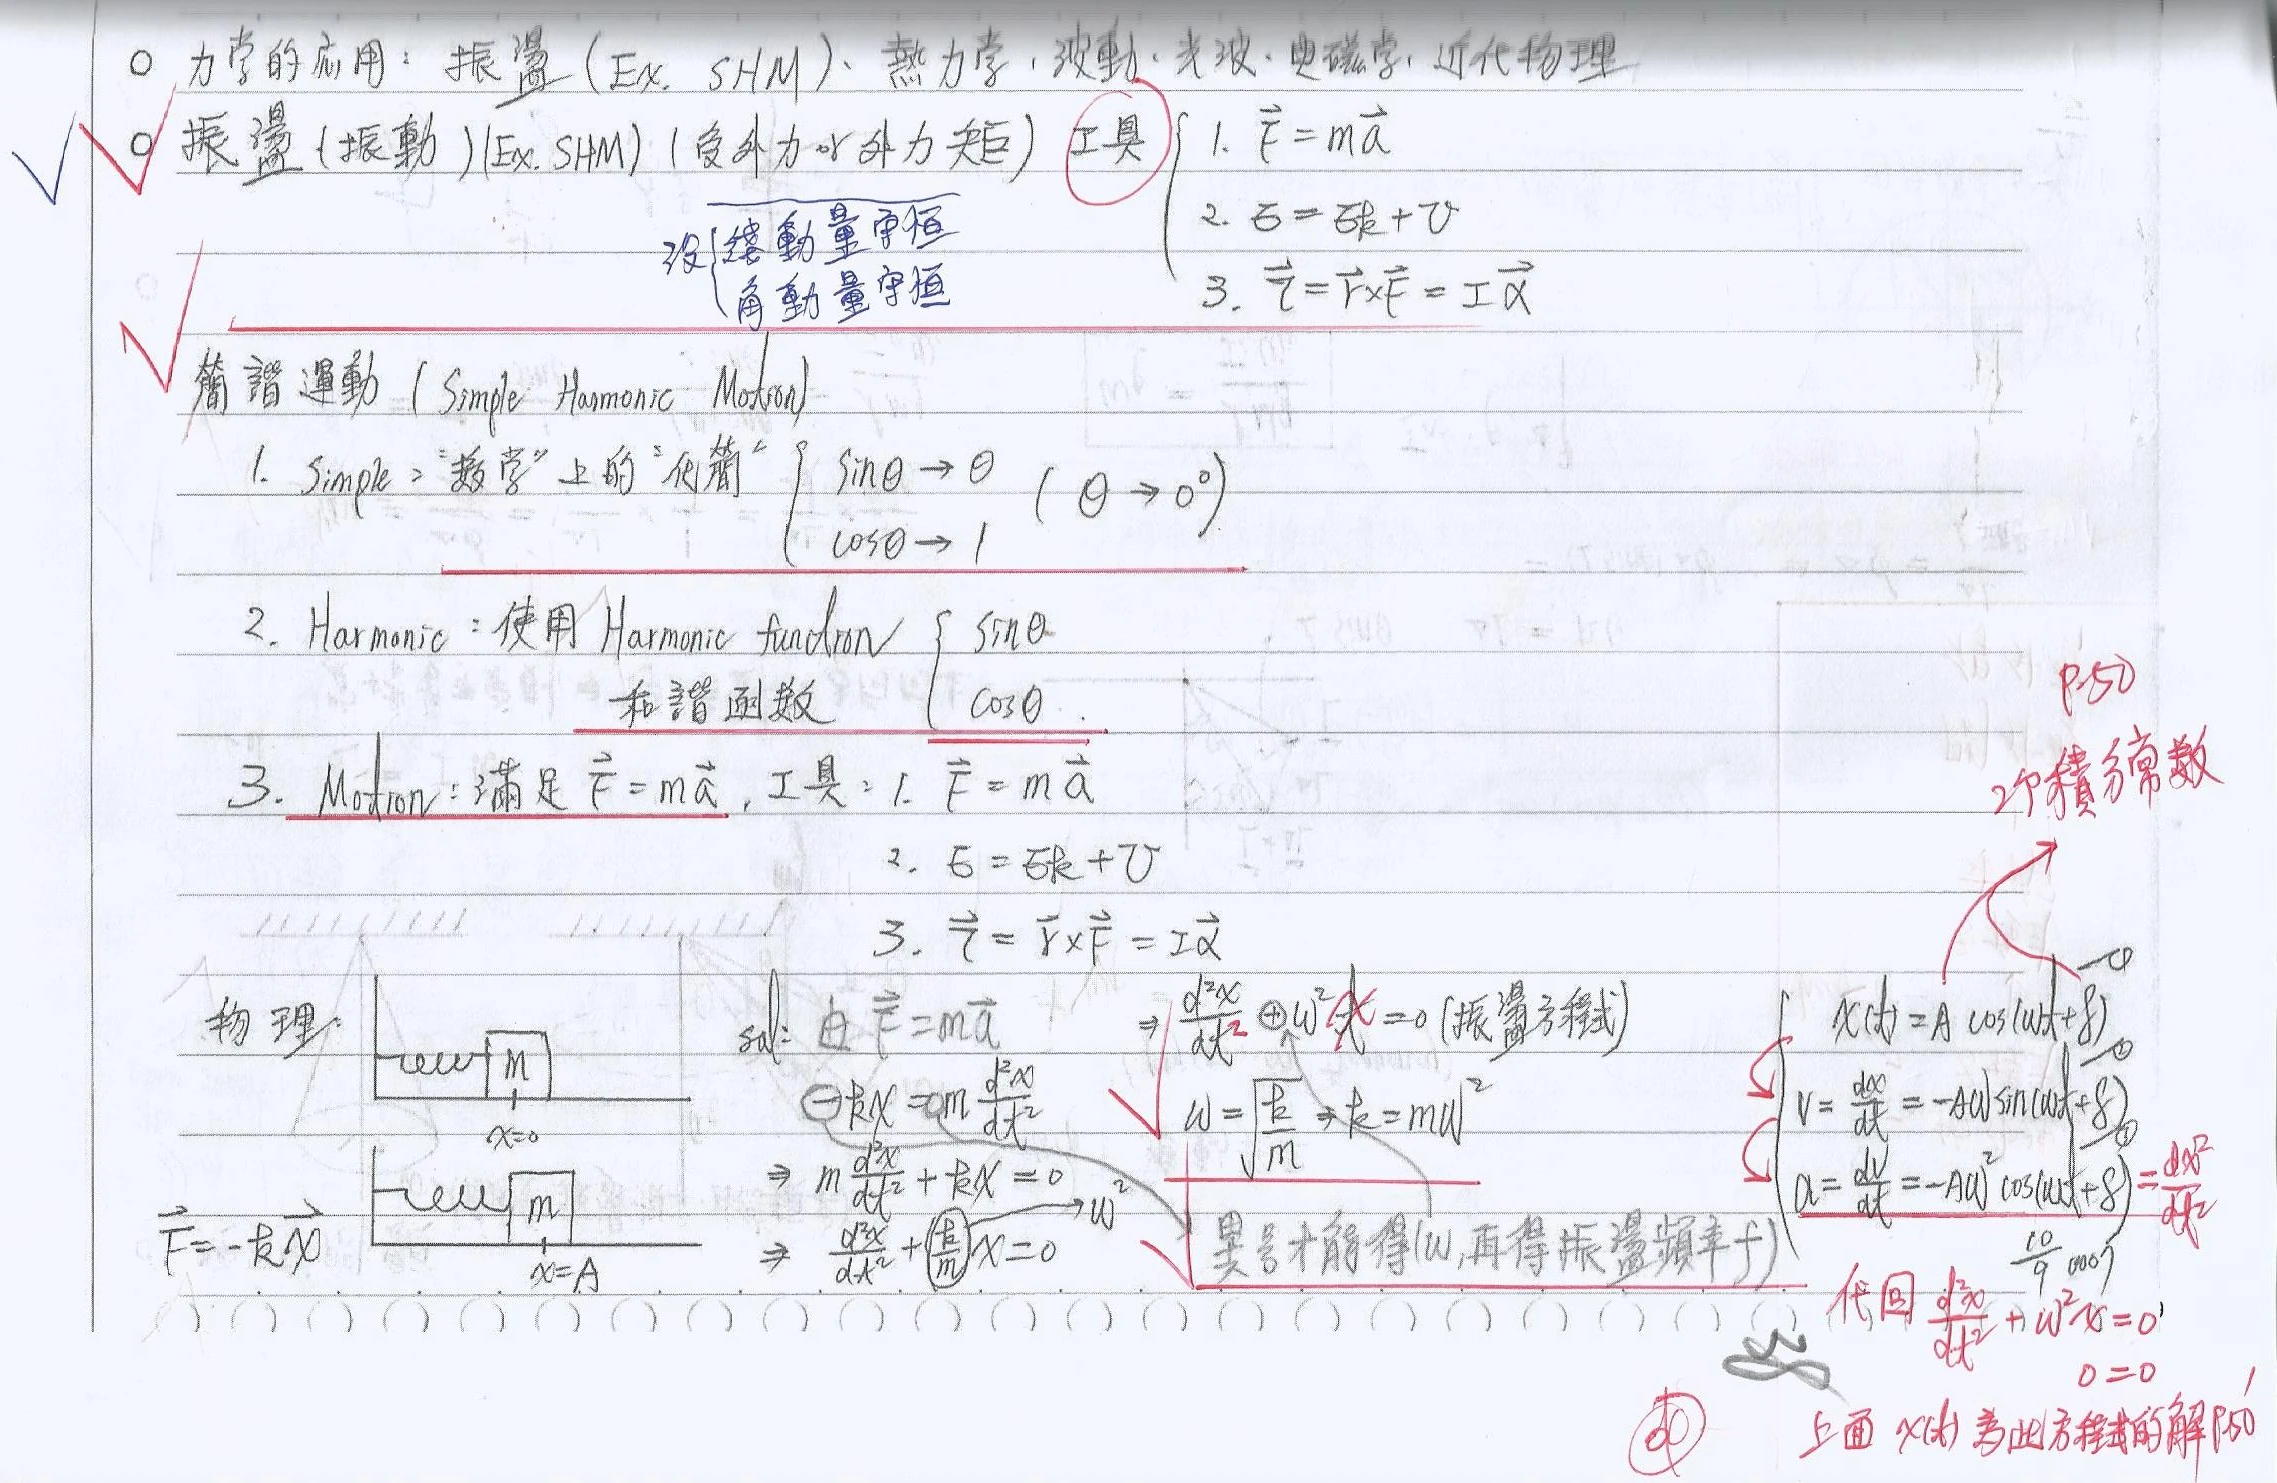 力学的应用：振盪（Ex. SHM）、熱力学、波動、光波、电磁学、近代物理
振盪（振動）（Ex. SHM）（受外力 or 外力矩） 工具
1. F⃗ = ma⃗
2. E = Ek + U
3. τ⃗ = r⃗ × F⃗ = Iα⃗
没 { 綫動量守恒
角動量守恒
簡諧運動（Simple Harmonic Motion）
1. Simple："数学"上的"化簡" { sinθ → θ （θ → 0°）
cosθ → 1
2. Harmonic：使用 Harmonic function { sinθ
和諧函数 cosθ.
3. Motion：滿足 F⃗ = ma⃗，工具：1. F⃗ = ma⃗
2. E = Ek + U
3. τ⃗ = r⃗ × F⃗ = Iα⃗
P.50
2个積分常数
物理：
m
x=0
F⃗ = -kx⃗
m
x=A
sol：由 F⃗ = ma⃗
-kx = m d²x/dt²
⇒ m d²x/dt² + kx = 0
⇒ d²x/dt² + (k/m)x = 0 → ω²
⇒ d²x/dt² ⊕ ω²x = 0（振盪方程式）
ω = √(k/m) ⇒ k = mω²
異号才能得（ω，再得振盪頻率f）
x(t) = A cos(ωt+δ)
v = dx/dt = -Aω sin(ωt+δ)
a = dv/dt = -Aω² cos(ωt+δ) = dx²/dt²
代回 d²x/dt² + ω²x = 0
0 = 0
上面 x(t) 為此方程式的解 P.50